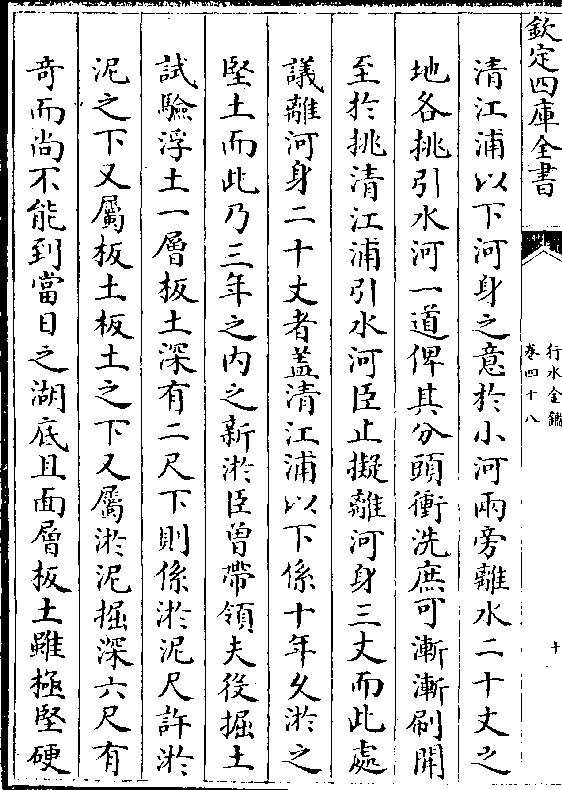 欽定四庫全書
行水金鑑
卷四十八
十
清江浦以下河身之意於小河兩旁離水二十丈之
地各挑引水河一道俾其分頭衝洗庶可漸漸刷開
至於挑清江浦引水河臣止擬離河身三丈而此處
議離河身二十丈者蓋清江浦以下係十年久淤之
堅土而此乃三年之內之新淤臣曾帶領夫役掘土
試驗浮土一層板土深有二尺下則係淤泥尺許淤
泥之下又屬板土板土之下又屬淤泥掘深六尺有
奇而尚不能到當日之湖底且面層板土雖極堅硬